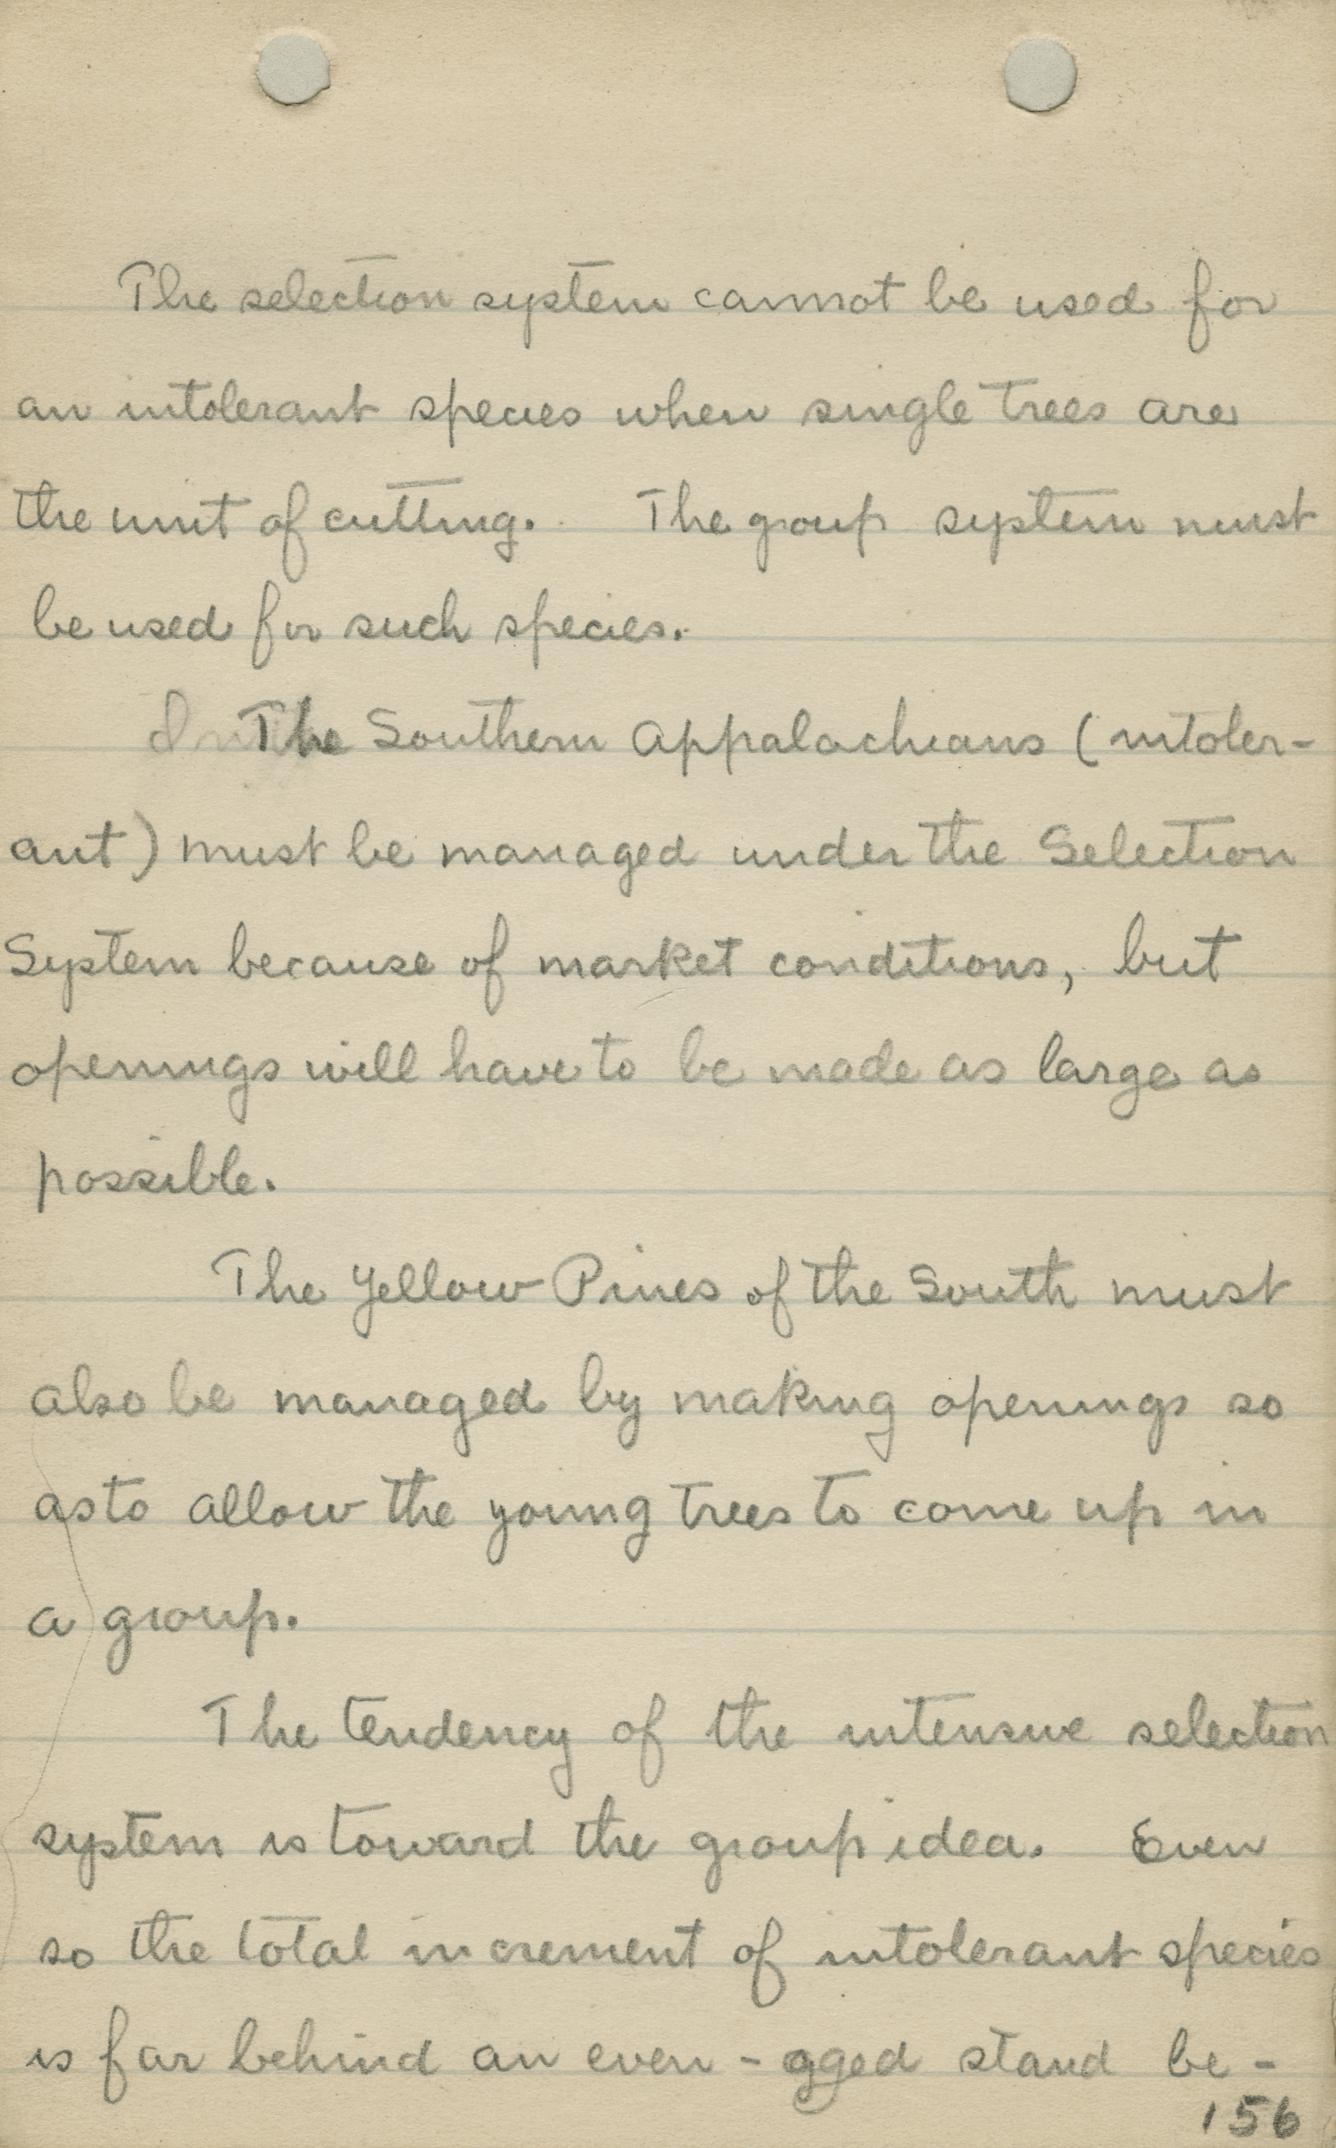 The selection system cannot be used for
an intolerant species when single trees are
the unit of cutting. The group system must
be used for such species.
The Southern Appalachians (intoler-
ant) must be managed under the Selection
System because of market conditions, but
openings will have to be made as large as
possible.
The Yellow Pines of the South must
also be managed by making openings so
as to allow the young trees to come up in
a group.
The tendency of the intensive selection
system is toward the group idea. Even
so the total increment of intolerant species
is far behind an even-aged stand be-
156